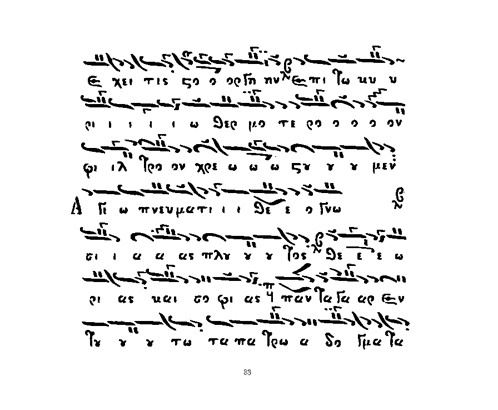 Ε χει τις ϛο ο ορ γη ην Ε πι τω κυ υ
ρι ι ι ι ι ω θερ μο τε ρο ο ο ο ον
φι ιλ τρο ον χρε ω ω ω ϛȣ ȣ ȣ μεν
Α γι ω πνευματι ι ι θε ε ο γνω
σι ι α α ας πλȣ ȣ ȣ τος θε ε ε ω
ρι ας και σο φι ας παν τα γα αρ εν
τȣ ȣ ȣ τω τα πα τρω α δο γμα τα
33